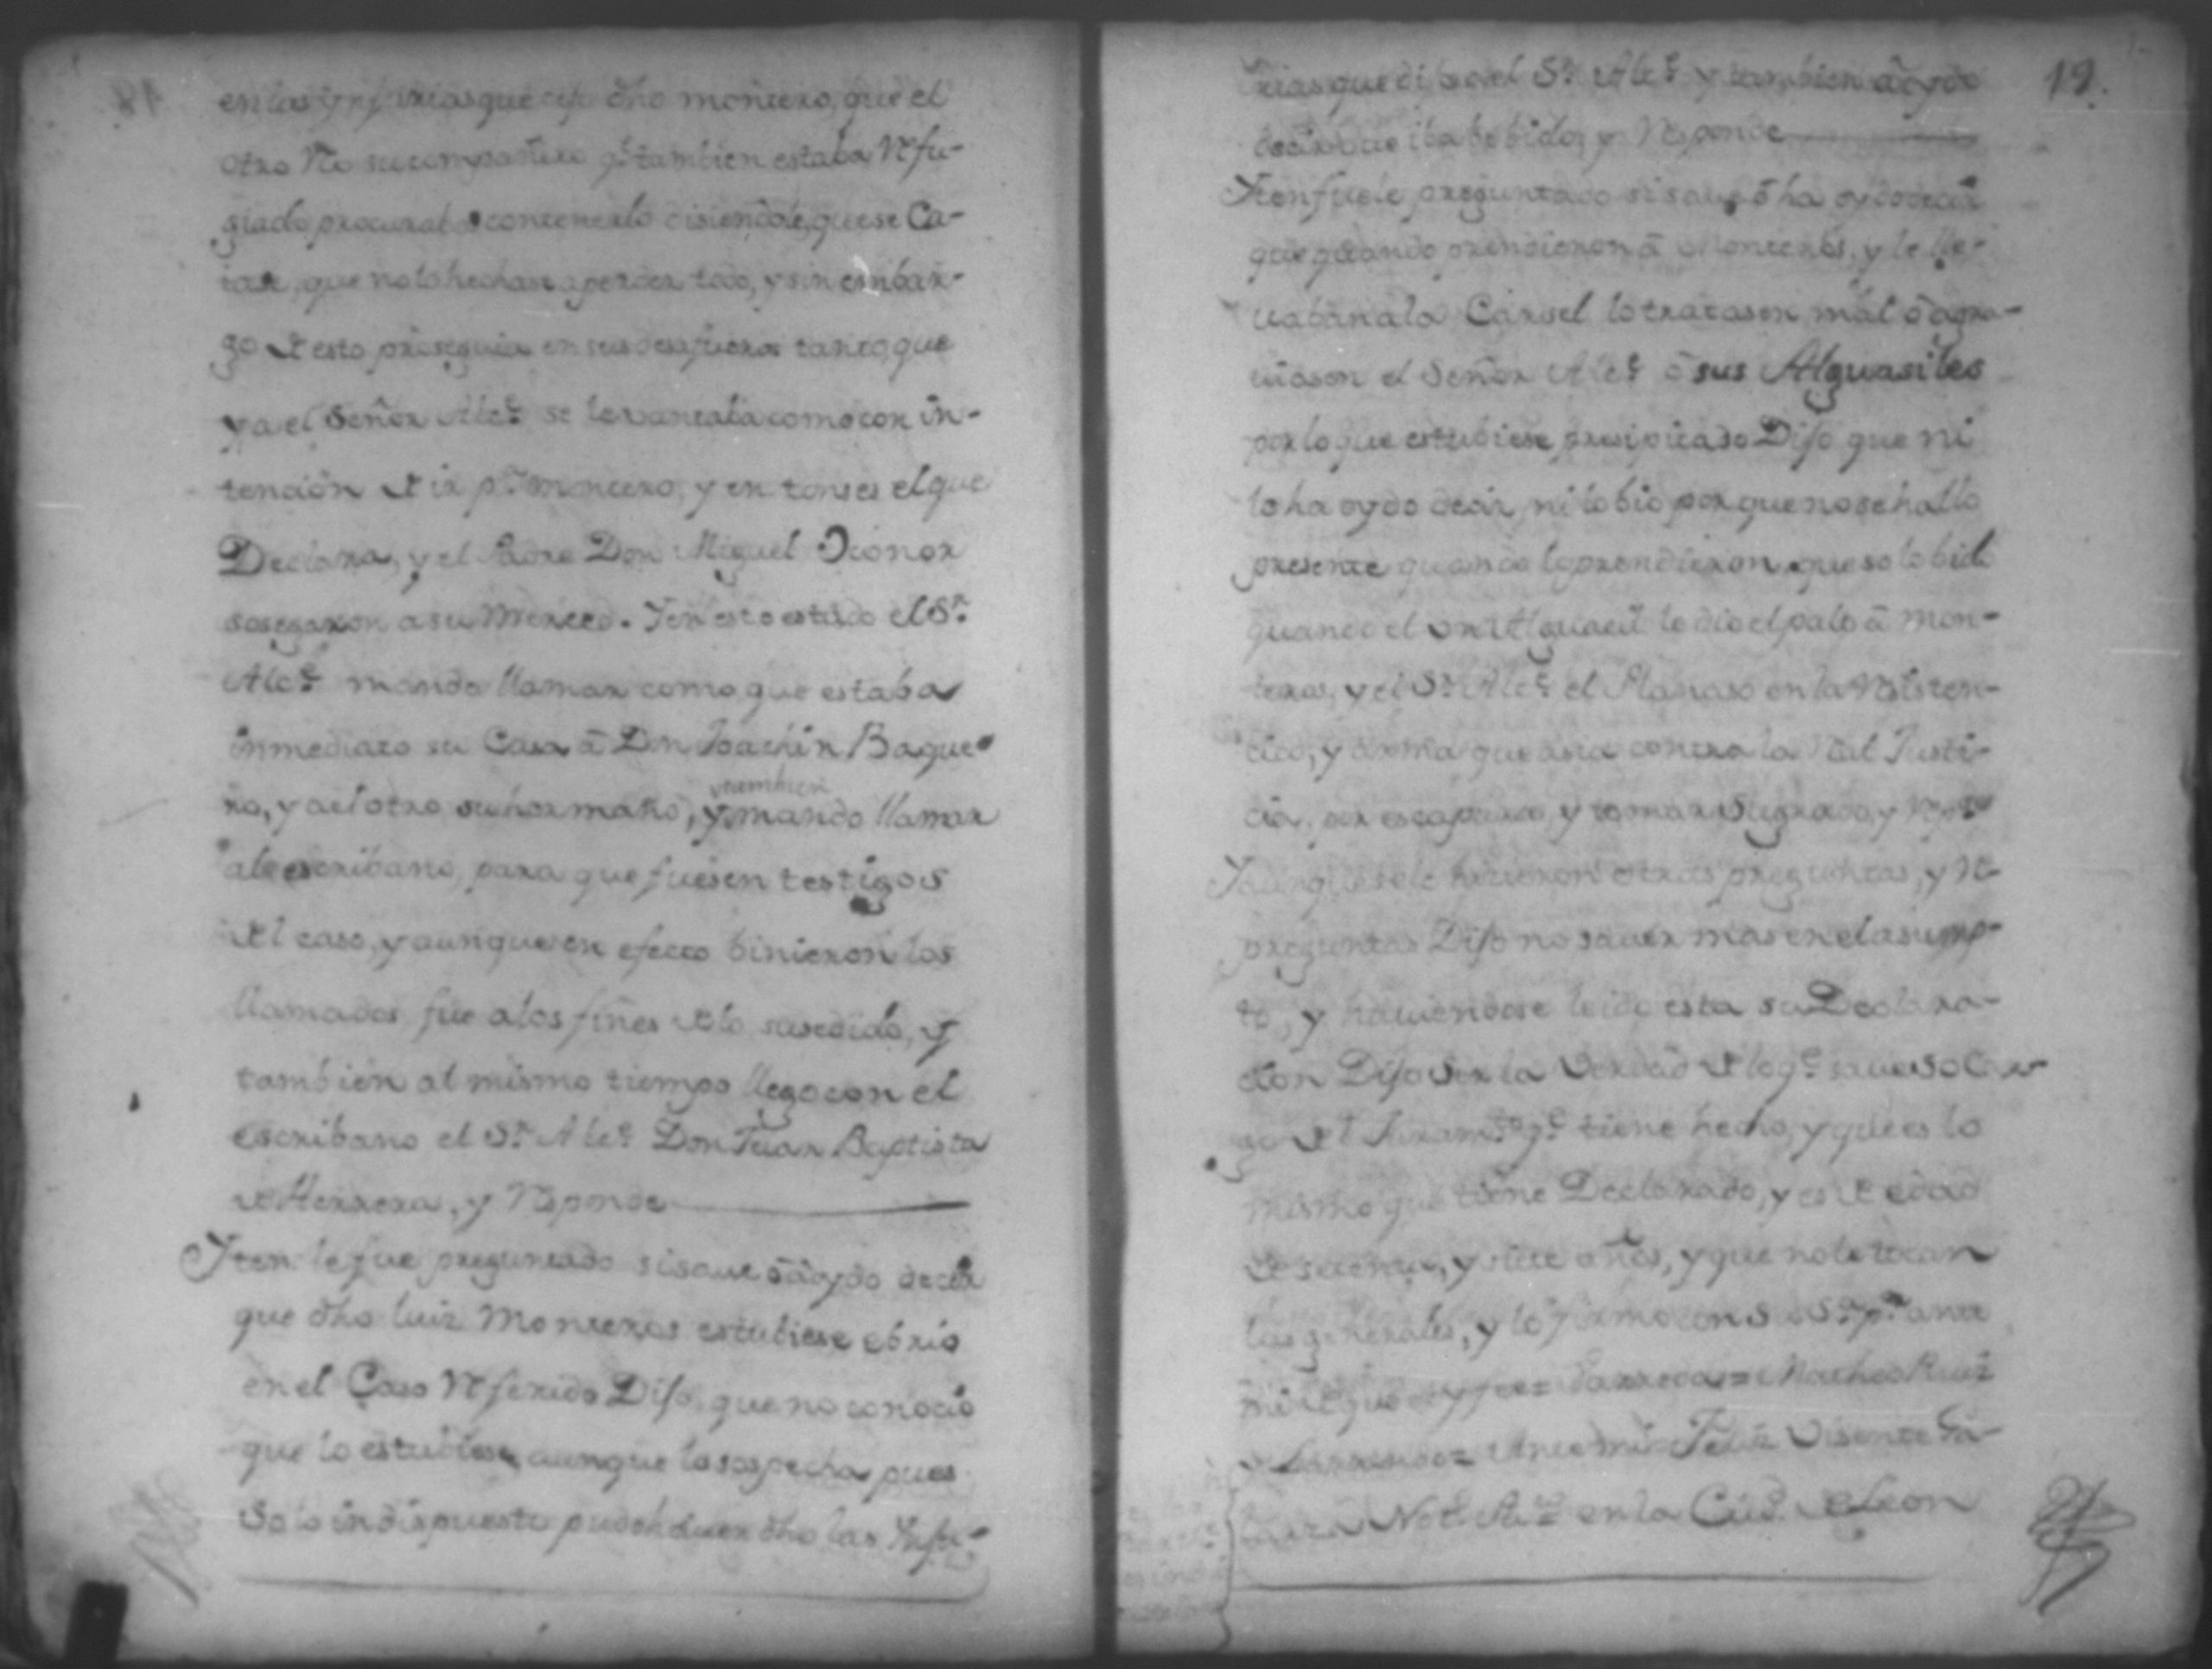 en las ynjurias que dijo dho montero, que el
otro Rº su compañero qᵉ tambien estaba Refu-
giado procuraba contenerlo disiendole, que se Ca-
llase, que no lo hechase a perder todo, y sin embar-
go de esto proseguia en sus desafueros tanto, que
ya el Señor Alcᵉ se levantaba como con in-
tencion de ir pʳ montero, y en tonses el que
Declara, y el Padre Don Miguel Oconor
sosegaron a su Merced. Y en esto estado el Sʳ
Alcᵉ mando llamar como que estaba
inmediato su Casa â Don Joachin Baque-
ro, y a el otro su hermano, y tambien mando llamar
al escribano, para que fuesen testigos
del caso, y aunque en efecto binieron los
llamados fue a los fines de lo susedido, y
tambien al mismo tiempo llego con el
escribano el Sʳ Alcᵉ Don Juan Baptista
de Herrera, y Responde
Yten le fue preguntado si save ô â oydo decir
que dho luiz Monteros estubiese ebrio
en el Caso Referido Dijo, que no conocio
que lo estubiese, aunque lo sospecha, pues
Solo indispuesto pudo haver dho las Ynju-
12.
rias que dijo el Sʳ Alcᵉ y tambien â oydo
decir que iba bebido, y Responde
Yten fuele preguntado si save, ô ha oydo decir
que quando prendieron â Monteros, y le lle-
vaban a la Carsel lo tratason mal ô agra-
viason el Señor Alcᵉ ô sus Alguasiles
por lo que estubiese presipitado Dijo que ni
lo ha oydo decir, ni lo bio por que no se hallo
presente quando lo prendieron, que solo bido
quando el un Alguacil le dio el palo â Mon-
teros, y el Sʳ Alcᵉ el Planaso en la Resisten-
cia, y arma que asia contra la Rˡ Justi-
cia, por escaparse, y tomar Sagrado, y Rᵉ
Y aunque se le hicieron otras preguntas, y Re-
preguntas Dijo no saver mas en el asump-
to, y haviendose leido esta su Declara-
cion Dijo Ser la Verdad de lo qᵉ save so Car-
go del Juramᵗᵒ qᵉ tiene hecho, y que es lo
mismo que tiene Declarado, y es de edad
de setenta, y siete años, y que no le tocan
las generales, y lo firmo con Su Sʳ pʳ ante
mi de que doy fee = = Matheo Ruiz
= Ante mi = Felix Visente
Notº en la Ciuᵈ de Leon